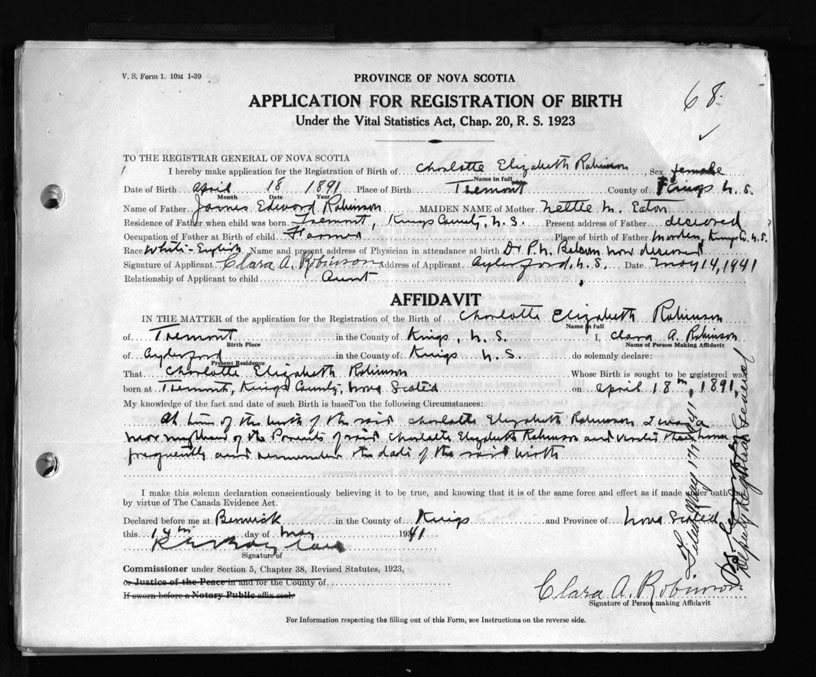 V. S. Form 1. 10M 1-39
PROVINCE OF NOVA SCOTIA
68
APPLICATION FOR REGISTRATION OF BIRTH
Under the Vital Statistics Act, Chap. 20, R. S. 1923
TO THE REGISTRAR GENERAL OF NOVA SCOTIA
I hereby make application for the Registration of Birth of Charlotte Elizabeth Robinson Sex female
Name in full
Date of Birth April 18 1891 Place of Birth Tremont County of Kings N. S.
Month Date Year
Name of Father James Edward Robinson MAIDEN NAME of Mother Nettie M. Eaton
Residence of Father when child was born Tremont, Kings County, N. S. Present address of Father deceased
Occupation of Father at Birth of child Farmer Place of birth of Father Morden, Kings Co. N. S.
Race White-English Name and present address of Physician in attendance at birth Dr P. N. now deceased
Signature of Applicant Clara A. Robinson Address of Applicant Aylesford, N. S. Date May 14, 1941
Relationship of Applicant to child Aunt
AFFIDAVIT
IN THE MATTER of the application for the Registration of the Birth of Charlotte Elizabeth Robinson
Name in full
of Tremont in the County of Kings, N. S. I, Clara A. Robinson
Birth Place Name of Person Making Affidavit
of Aylesford in the County of Kings N. S. do solemnly declare:
Present Residence
That Charlotte Elizabeth Robinson Whose Birth is sought to be registered was
born at Tremont, Kings County, Nova Scotia on April 18th 1891.
My knowledge of the fact and date of such Birth is based on the following Circumstances:
At time of the birth of the said Charlotte Elizabeth Robinson I was a
near neighbour of the Parents of said Charlotte Elizabeth Robinson and visited their home
frequently and remember the date of the said birth
I make this solemn declaration conscientiously believing it to be true, and knowing that it is of the same force and effect as if made under oath
by virtue of The Canada Evidence Act.
Declared before me at Berwick in the County of Kings and Province of Nova Scotia
this 14th day of May 1941
Signature of
Commissioner under Section 5, Chapter 38, Revised Statutes, 1923,
or Justice of the Peace in and for the County of
If sworn before a Notary Public affix seal
Clara A. Robinson
Signature of Person making Affidavit
For Information respecting the filling out of this Form, see Instructions on the reverse side.
Filed May 17 1941
Deputy Registrar General